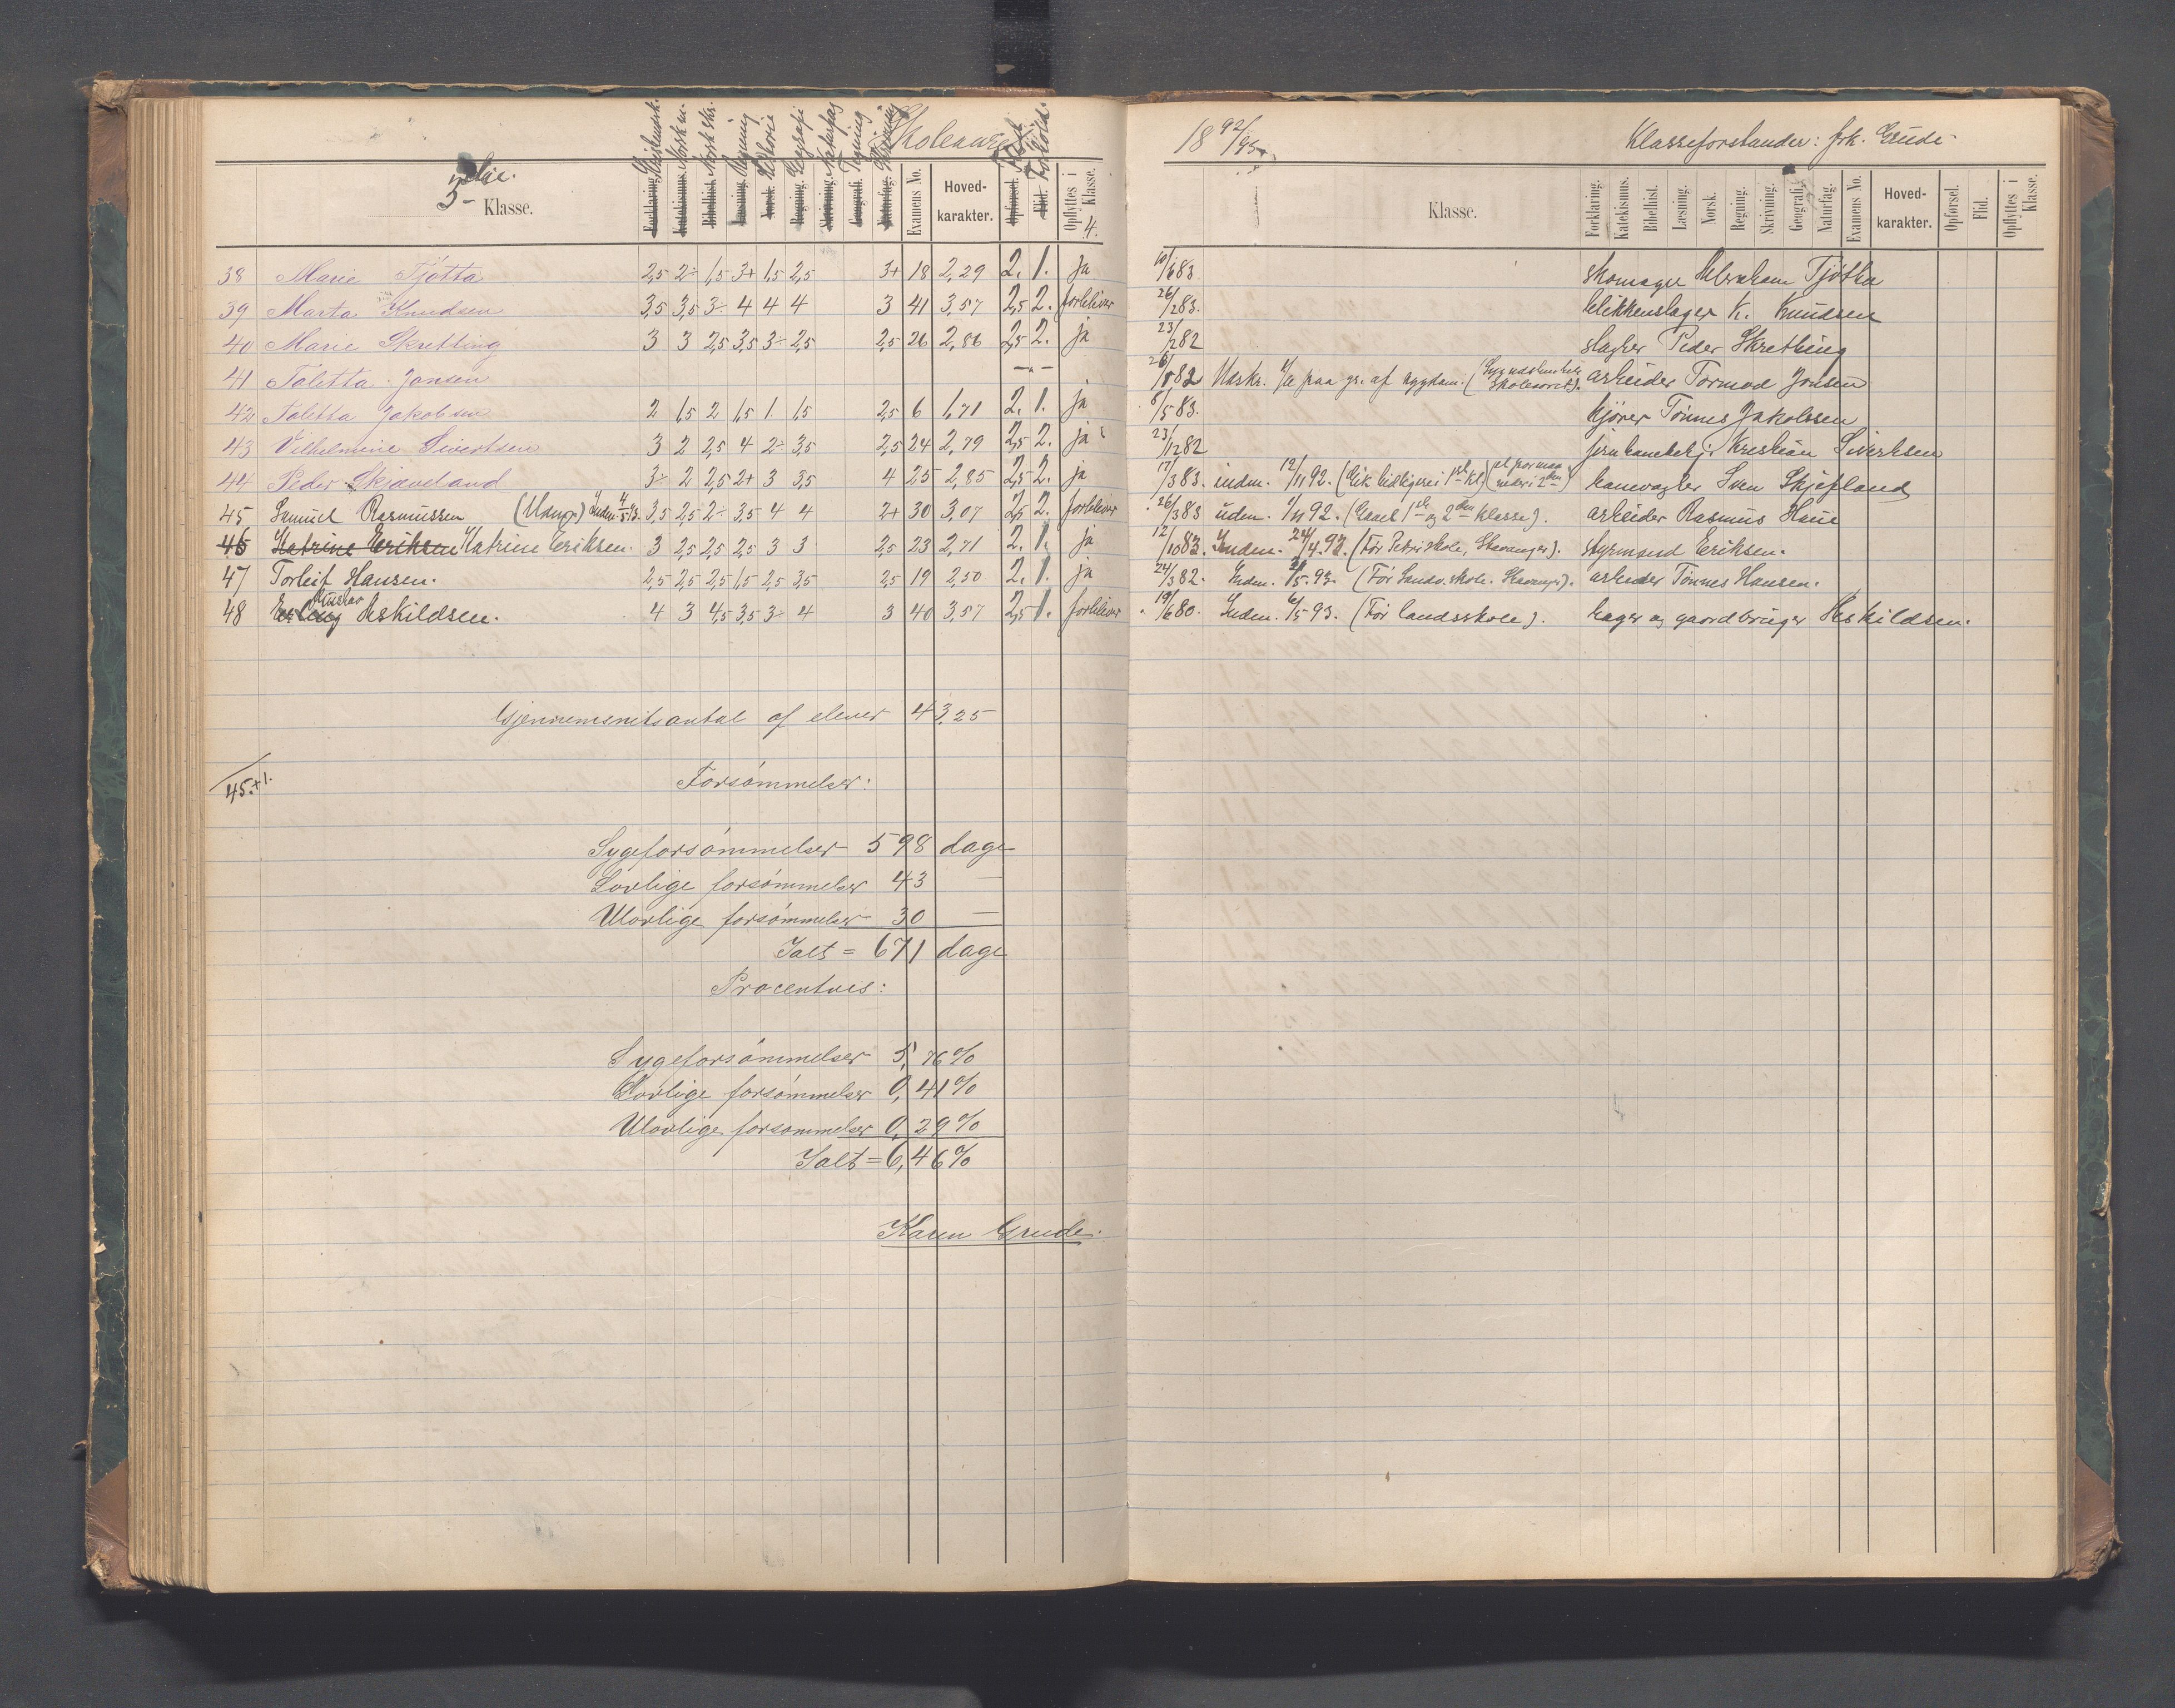 Skoleaaret 1892/93.
Klasseforstander: frk. Grude
3die Klasse.
Kristendomsk. Norsk m. Norsk skr. Regning Historie Geografi Naturfag Tegning Skrivning Flid Forhold.
Forklaring. Katekismus. Bibelhist. Læsning. Norsk. Regning. Skrivning. Geografi. Naturfag. Examens No. Hoved-karakter. Opførsel. Flid. Opflyttes i 4. Klasse.
Klasse. Forklaring. Katekismus. Bibelhist. Læsning. Norsk. Regning. Skrivning. Geografi. Naturfag. Examens No. Hoved-karakter. Opførsel. Flid. Opflyttes i Klasse.
38 Marie Tjøtta 2,5 2÷ 1,5 3+ 1,5 2,5 3+ 18 2,29 2. 1. ja 10/6 83. skomager Abraham Tjøtta
39 Marta Knudsen 3,5 3,5 3÷ 4 4 4 3 41 3,57 2,5 2. forbliver 26/2 83. blikkenslager K. Knudsen
40 Marie Skretting 3 3 2,5 3,5 3÷ 2,5 2,5 26 2,86 2,5 2. ja 23/2 82 slagter Peder Skretting
41 Taletta Jansen - - - 26/8 82 Udskr. paa gr. af sygdom. arbeider Tormod Jonsen
42 Taletta Jakobsen 2 1,5 2 1,5 1. 1,5 2,5 6 1,71 2. 1. ja 8/5 83. kjører Tønnes Jakobsen
43 Vilhelmine Sivertsen 3 2 2,5 4 2÷ 3,5 2,5 24 2,79 2,5 2. ja 23/12 82 jernbanebetj. Kristian Sivertsen
44 Peder Skjæveland 3÷ 2 2,5 2+ 3 3,5 4 25 2,85 2,5 2. ja 17/3 83. indm. 12/11 92. (Gik tidligere i 1ste kl.) banevogter Sven Skjæfland
45 Samuel Rasmussen (Udmp.) Indm. 4/5 93. 3,5 2,5 2÷ 3,5 4 4 2+ 30 3,07 2,5 2. forbliver 26/3 83 udm. 1/11 92. (Gaaet 1ste og 2den klasse). arbeider Rasmus Haue
46 Katrine Eriksen Katrine Eriksen. 3 2,5 2,5 2,5 3 3 2,5 23 2,71 2. 1. ja 12/10 83. Indm. 24/4. 93. (Før Petri skole, Stavanger). styrmand Eriksen.
47 Torleif Hansen. 2,5 2,5 2,5 1,5 2,5 3,5 2,5 19 2,50 2. 1. ja 24/3 82. Indm. 2/5. 93. (Før Sandv. skole. Stavanger). arbeider Tønnes Hansen.
48 Erling Gustav Askildsen. 4 3 4,5 3,5 3÷ 4 3 40 3,57 2,5 1. forbliver 19/6 80. Indm. 6/5 93. (Før landsskole). bager og gaardbruger Askildsen.
Gjennemsnitsantal af elever 43,25
45.+1.
Forsømmelser:
Sygeforsømmelser 598 dage
Lovlige forsømmelser 43 —
Ulovlige forsømmelser 30 —
Ialt = 671 dage
Procentvis:
Sygeforsømmelser 5,76%
Lovlige forsømmelser 0,41%
Ulovlige forsømmelser 0,29%
Ialt = 6,46%
Karen Grude.